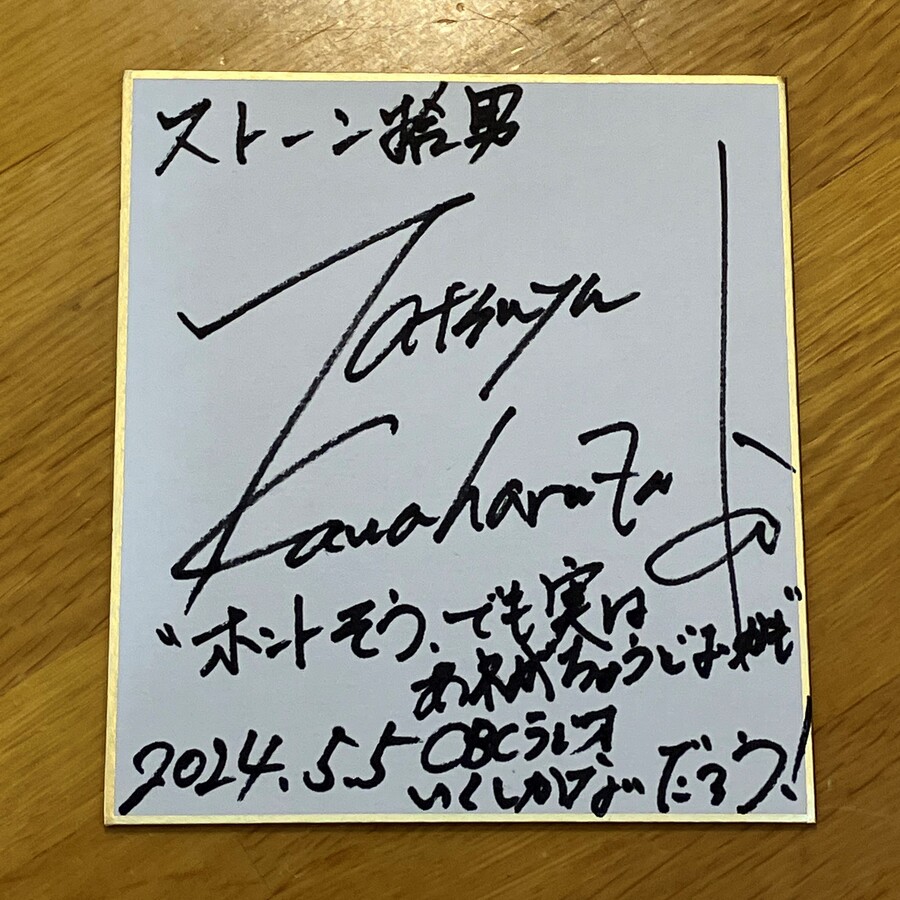 ストーン捨男
Tatsuya
Kawahara
よ
"ホントそう、でも実は
あれがちょうどよい
2024.5.5 OBCラジオ
いくしかないだろう!